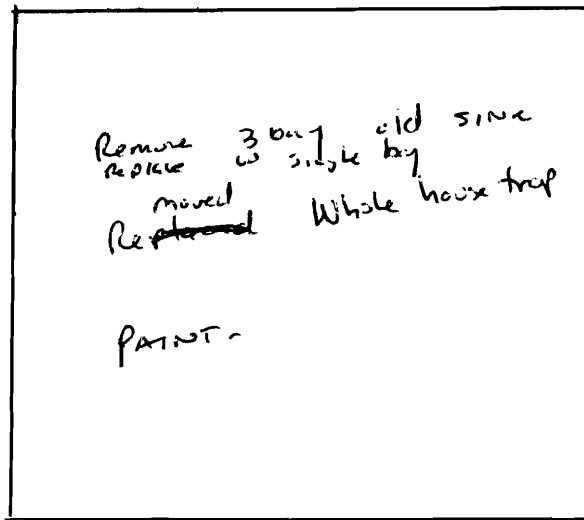 Remove 3 bay old sink
replace w single bay
Removed Whole house trap
PAINT-